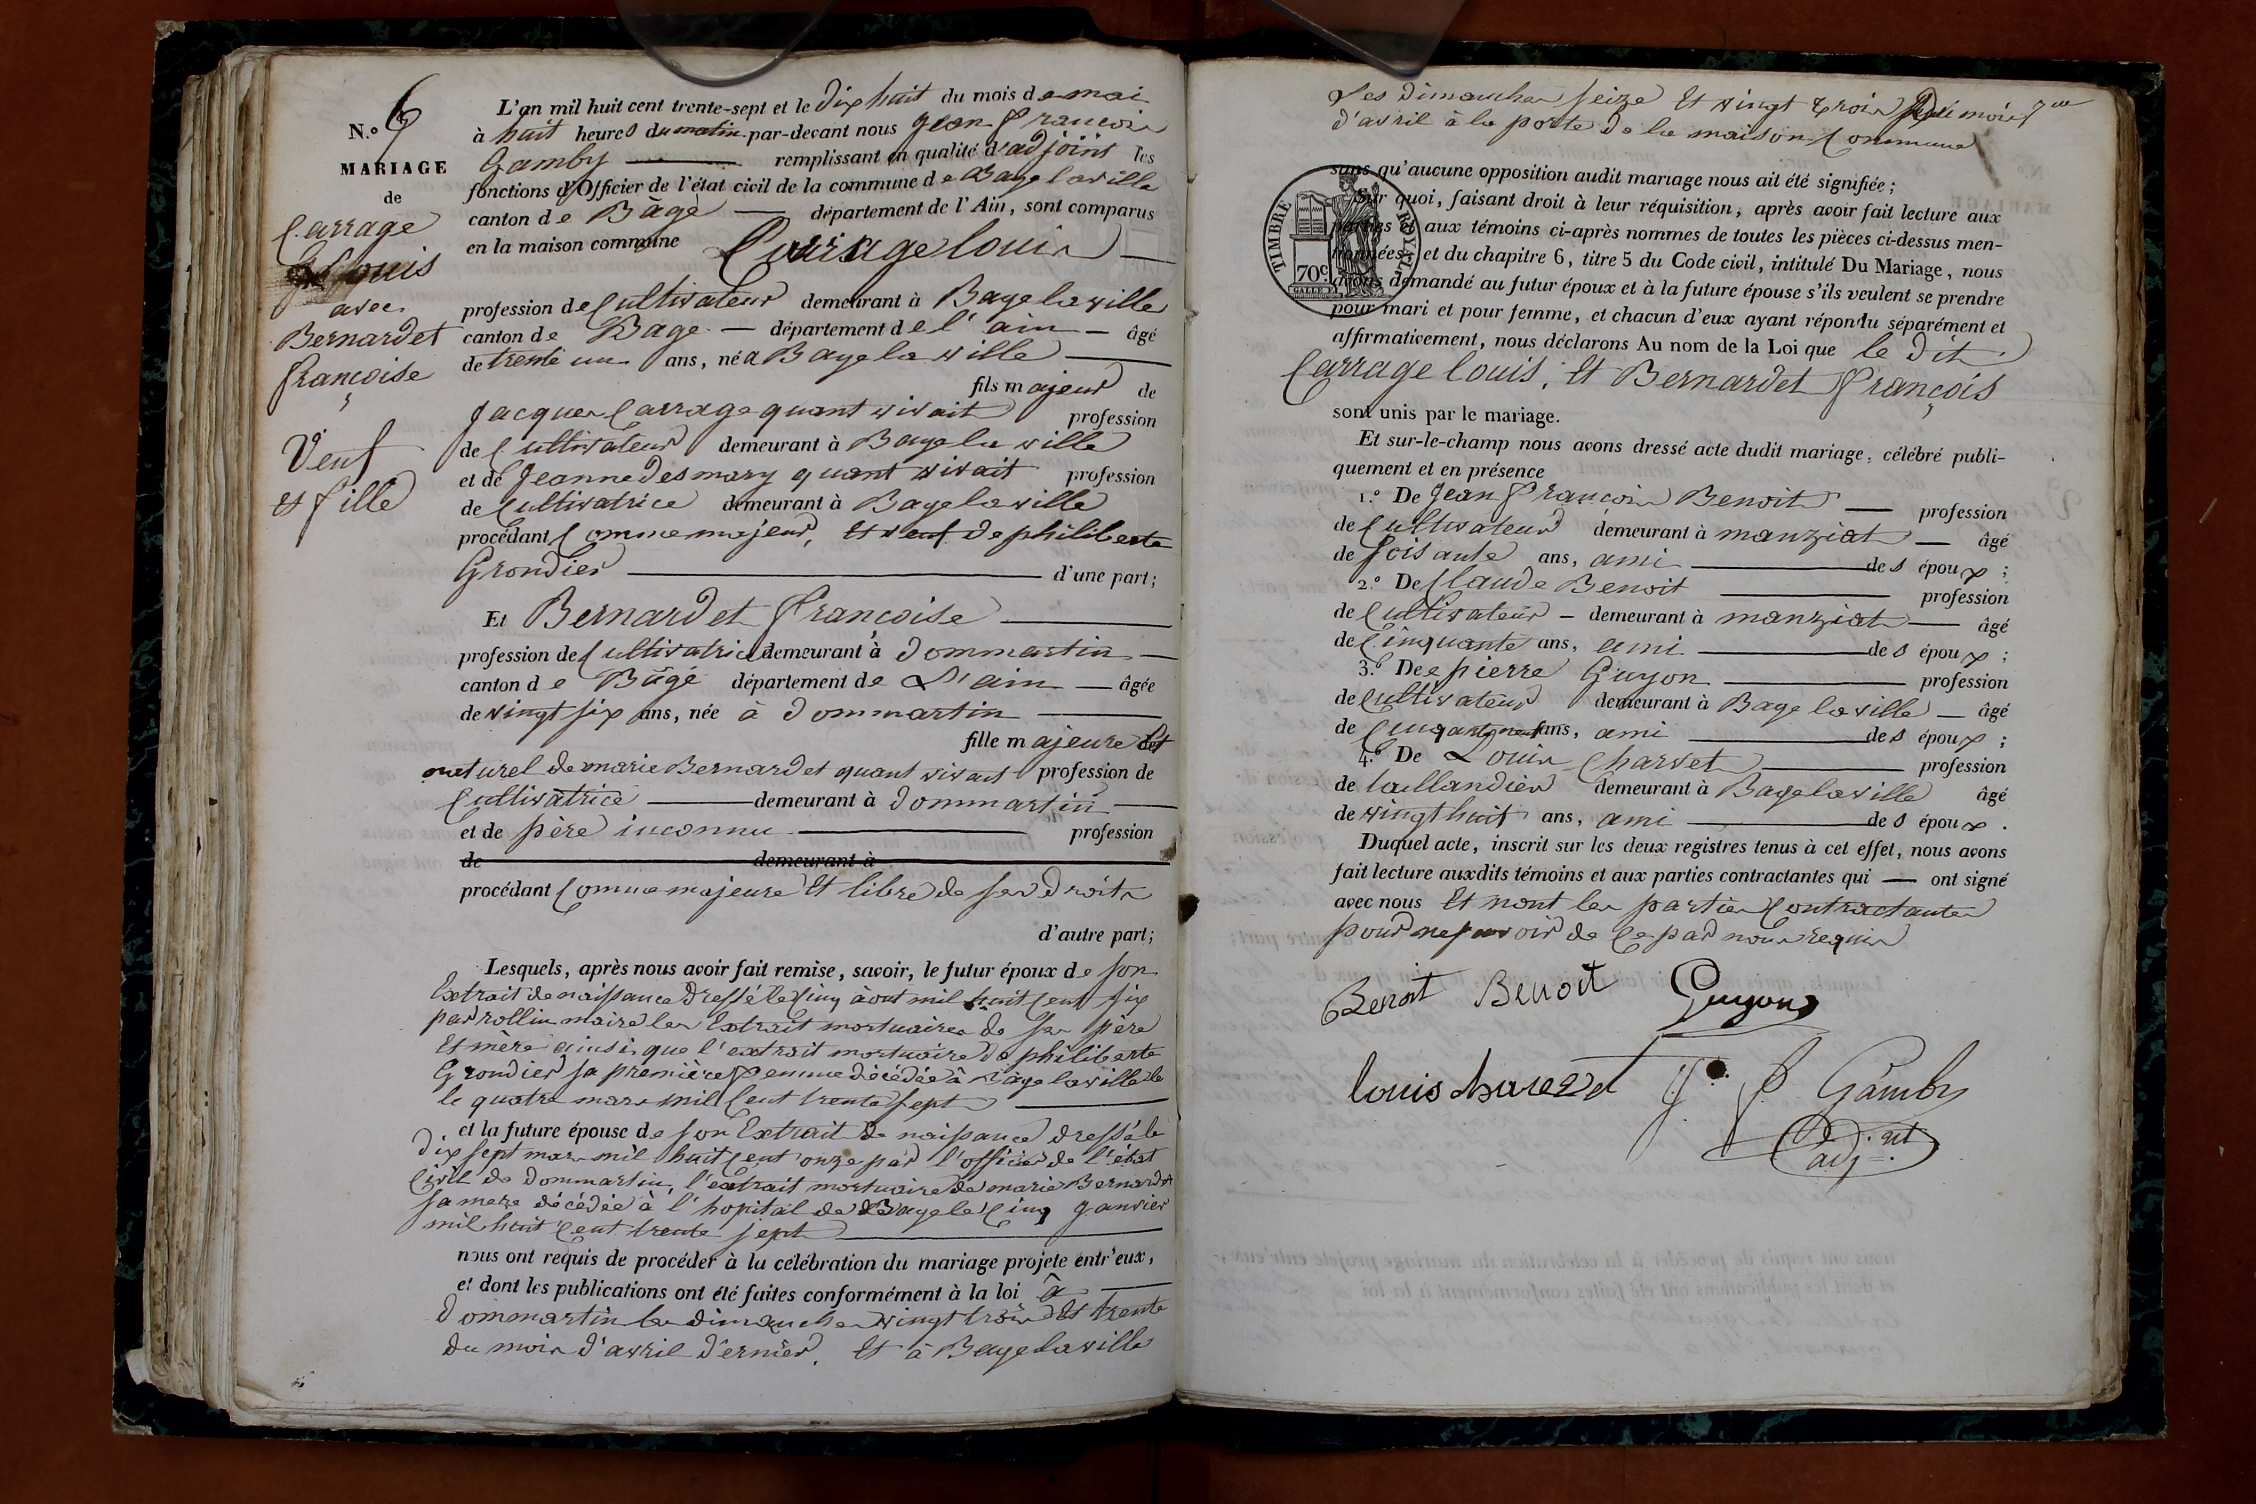 N.o 6
MARIAGE
de
Carrage
Louis
avec
Bernardet
françoise
Veuf
et fille
L'an mil huit cent trente-sept et le dix huit du mois de mai
à huit heures du matin par-devant nous Jean François
Gamby remplissant en qualité d'adjoint les
fonctions d'Officier de l'état civil de la commune de Bage la ville
canton de Bâgé département de l'Ain, sont comparus
en la maison commune Carrage louis
profession de Cultivateur demeurant à Bage la ville
canton de Bage département de l'ain âgé
de trente un ans, né a Bage la ville
fils majeur de
Jacques Carrage quant vivait profession
de Cultivateur demeurant à Bage la ville
et de Jeanne Desmary quant vivait profession
de Cultivatrice demeurant à Bage la ville
procédant Comme majeur, et veuf de philiberte
Grondier d'une part;
Et Bernardet françoise
profession de Cultivatrice demeurant à dommartin
canton de Bâgé département de L'ain âgée
de vingt six ans, née à dommartin
fille majeure et
naturel de marie Bernardet quant vivait profession de
Cultivatrice demeurant à dommartin
et de père inconnu profession
de demeurant à
procédant Comme majeure Et libre de ses droits
d'autre part;
Lesquels, après nous avoir fait remise, savoir, le futur époux de son
Extrait de naissance dressé le Cinq août mil huit Cent six
par rollin maire les Extrait mortuaires de ses père
Et mère ainsi que l'extrait mortuaire de philiberte
Grondier sa première femme décédée à Bage la ville le
le quatre mars mil Cent trente sept
et la future épouse de son Extrait de naissance dressé le
dix sept mars mil huit Cent onze par l'officier de l'état
Civil de Dommartin, l'extrait mortuaire de marie Bernardet
sa mere décédée à l'hopital de Bage le Cinq janvier
mil huit Cent trente sept
nous ont requis de procéder à la célébration du mariage projeté entr'eux,
et dont les publications ont été faites conformément à la loi à
dommartin les dimanches vingt trois Et trente
du mois d'avril dernier, Et à Bage la ville
Les dimanches seize Et vingt trois du mois
d'avril à la porte de la maison Commune
sans qu'aucune opposition audit mariage nous ait été signifiée;
Sur quoi, faisant droit à leur réquisition, après avoir fait lecture aux
parties et aux témoins ci-après nommes de toutes les pièces ci-dessus men-
tionnées, et du chapitre 6, titre 5 du Code civil, intitulé Du Mariage, nous
avons demandé au futur époux et à la future épouse s'ils veulent se prendre
pour mari et pour femme, et chacun d'eux ayant répondu séparément et
affirmativement, nous déclarons Au nom de la Loi que le dit
Carrage louis, Et Bernardet François
sont unis par le mariage.
Et sur-le-champ nous avons dressé acte dudit mariage, célébré publi-
quement et en présence
1.o De Jean François Benoit profession
de Cultivateur demeurant à manziat âgé
de soisante ans, ami des époux;
2.o De Claude Benoit profession
de Cultivateur demeurant à manziat âgé
de Cinquante ans, ami des époux;
3.o De pierre Guyon profession
de Cultivateur demeurant à Bage la ville âgé
de ans, ami des époux;
4.o De Louis Charvet profession
de taillandier demeurant à Bage la ville âgé
de vingt huit ans, ami des époux.
Duquel acte, inscrit sur les deux registres tenus à cet effet, nous avons
fait lecture auxdits témoins et aux parties contractantes qui ont signé
avec nous Et nont les parties Contractantes
pour ne savoir de Ce par nous requis
TIMBRE ROYAL
70c
Benoit Benoit Guyon
louis charvet J. F. Gamby
adj.nt